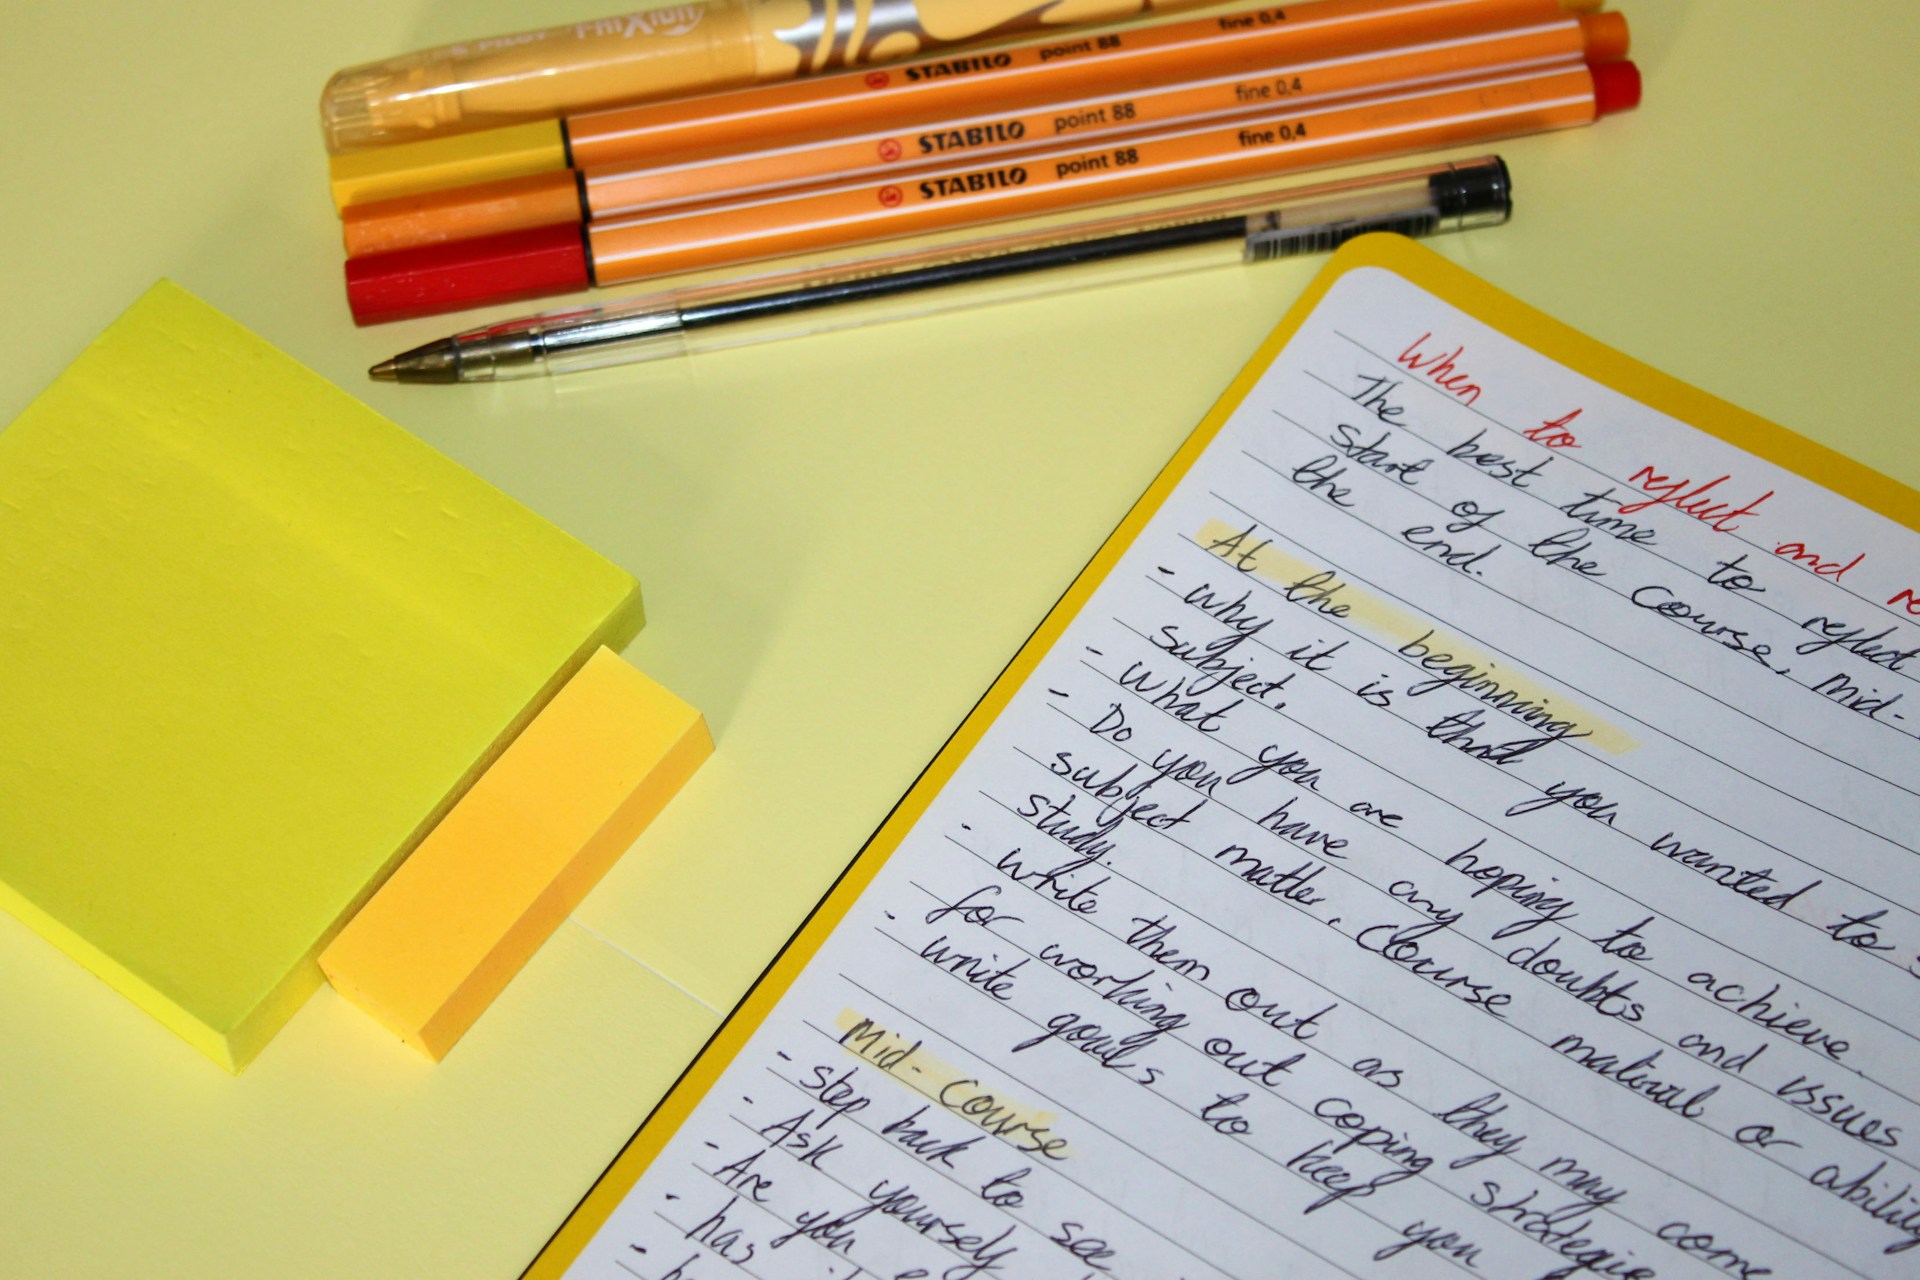 PILOT FRIXION
STABILO point 88 fine 0,4
STABILO point 88 fine 0,4
STABILO point 88 fine 0,4
When to reflect and re
The best time to reflect
start of the course, mid-
the end.
At the beginning
- why it is that you wanted to s
subject.
- what you are hoping to achieve.
- Do you have any doubts and issues
subject matter. Course material or ability
study.
- write them out as they may come
for working out coping strategie
- write goals to keep you
Mid-Course
- step back to see
- Ask yourself
- Are you
- has